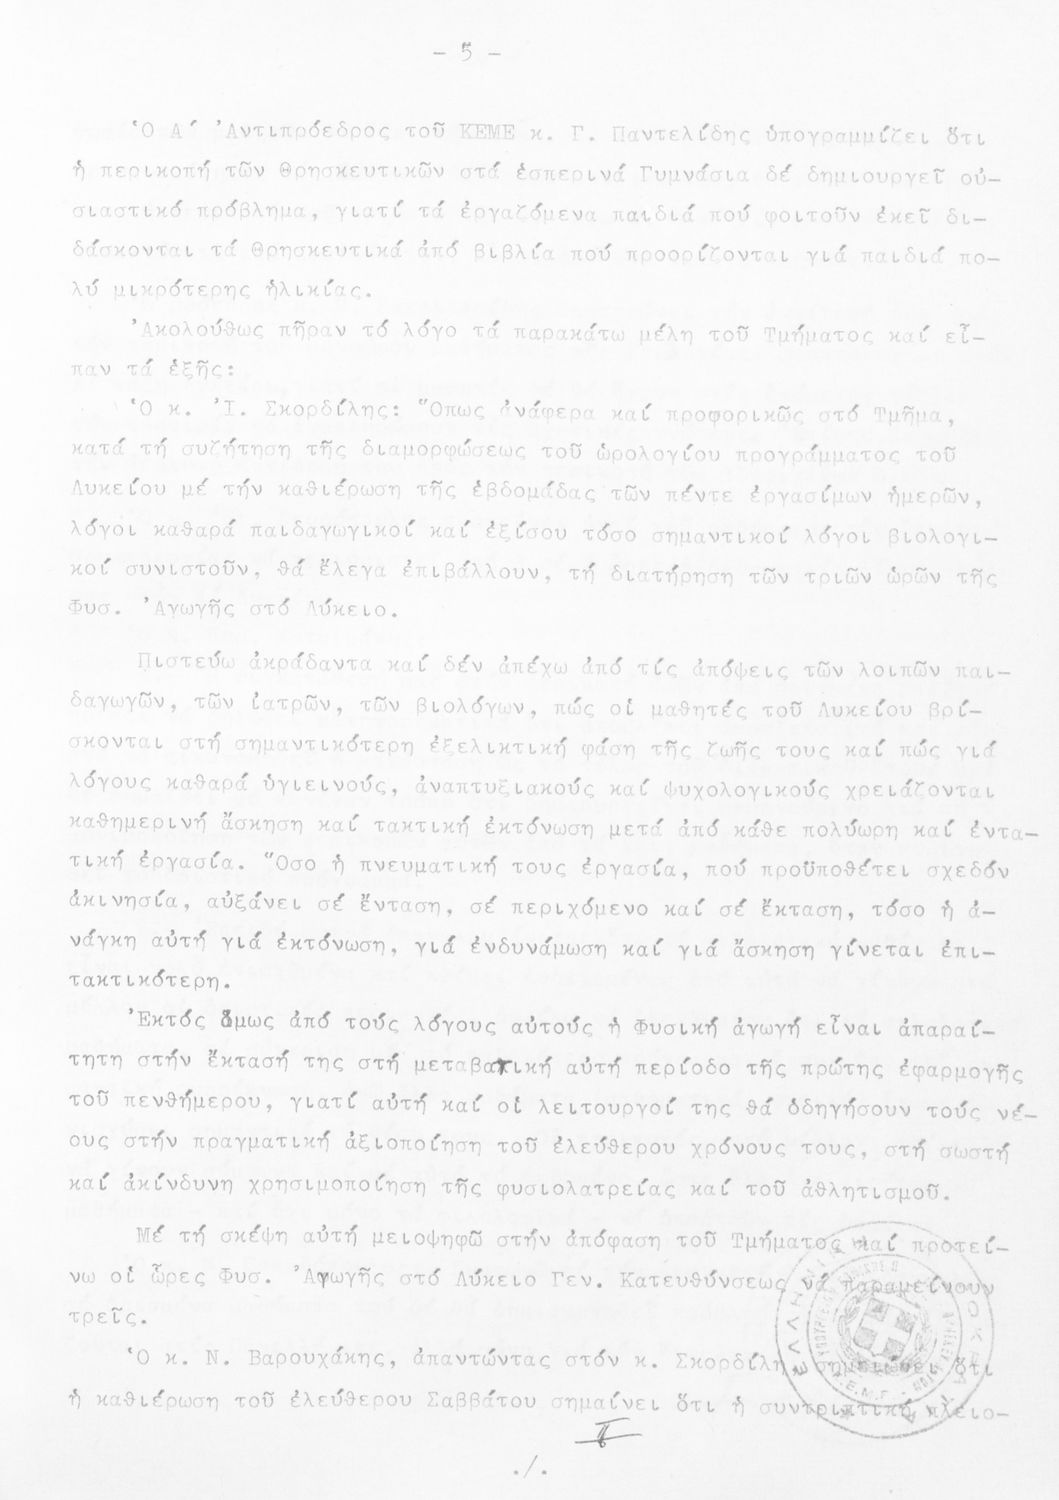 - 5 -
Ὁ Α΄ Ἀντιπρόεδρος τοῦ ΚΕΜΕ κ. Γ. Παντελίδης ὑπογραμμίζει ὅτι
ἡ περικοπή τῶν Θρησκευτικῶν στά ἑσπερινά Γυμνάσια δέ δημιουργεῖ οὐ-
σιαστικό πρόβλημα, γιατί τά ἐργαζόμενα παιδιά πού φοιτοῦν ἐκεῖ δι-
δάσκονται τά Θρησκευτικά ἀπό βιβλία πού προορίζονται γιά παιδιά πο-
λύ μικρότερης ἡλικίας.
Ἀκολούθως πῆραν τό λόγο τά παρακάτω μέλη τοῦ Τμήματος καί εἶ-
παν τά ἑξῆς:
Ὁ κ. Ἰ. Σκορδίλης: Ὅπως ἀνάφερα καί προφορικῶς στό Τμῆμα,
κατά τή συζήτηση τῆς διαμορφώσεως τοῦ ὡρολογίου προγράμματος τοῦ
Λυκείου μέ τήν καθιέρωση τῆς ἑβδομάδας τῶν πέντε ἐργασίμων ἡμερῶν,
λόγοι καθαρά παιδαγωγικοί καί ἐξίσου τόσο σημαντικοί λόγοι βιολογι-
κοί συνιστοῦν, θά ἔλεγα ἐπιβάλλουν, τή διατήρηση τῶν τριῶν ὡρῶν τῆς
Φυσ. Ἀγωγῆς στό Λύκειο.
Πιστεύω ἀκράδαντα καί δέν ἀπέχω ἀπό τίς ἀπόψεις τῶν λοιπῶν παι-
δαγωγῶν, τῶν ἰατρῶν, τῶν βιολόγων, πώς οἱ μαθητές τοῦ Λυκείου βρί-
σκονται στή σημαντικότερη ἐξελικτική φάση τῆς ζωῆς τους καί πώς γιά
λόγους καθαρά ὑγιεινούς, ἀναπτυξιακούς καί ψυχολογικούς χρειάζονται
καθημερινή ἄσκηση καί τακτική ἐκτόνωση μετά ἀπό κάθε πολύωρη καί ἐντα-
τική ἐργασία. Ὅσο ἡ πνευματική τους ἐργασία, πού προϋποθέτει σχεδόν
ἀκινησία, αὐξάνει σέ ἔνταση, σέ περιχόμενο καί σέ ἔκταση, τόσο ἡ ἀ-
νάγκη αὐτή γιά ἐκτόνωση, γιά ἐνδυνάμωση καί γιά ἄσκηση γίνεται ἐπι-
τακτικότερη.
Ἐκτός ὅμως ἀπό τούς λόγους αὐτούς ἡ Φυσική ἀγωγή εἶναι ἀπαραί-
τητη στήν ἔκτασή της στή μεταβατική αὐτή περίοδο τῆς πρώτης ἐφαρμογῆς
τοῦ πενθήμερου, γιατί αὐτή καί οἱ λειτουργοί της θά ὁδηγήσουν τούς νέ-
ους στήν πραγματική ἀξιοποίηση τοῦ ἐλεύθερου χρόνους τους, στή σωστή
καί ἀκίνδυνη χρησιμοποίηση τῆς φυσιολατρείας καί τοῦ ἀθλητισμοῦ.
Μέ τή σκέψη αὐτή μειοψηφῶ στήν ἀπόφαση τοῦ Τμήματος καί προτεί-
νω οἱ ὧρες Φυσ. Ἀγωγῆς στό Λύκειο Γεν. Κατευθύνσεως νά παραμείνουν
τρεῖς.
Ὁ κ. Ν. Βαρουχάκης, ἀπαντώντας στόν κ. Σκορδίλη σημειώνει ὅτι
ἡ καθιέρωση τοῦ ἐλεύθερου Σαββάτου σημαίνει ὅτι ἡ συντριπτική πλειο-
./.